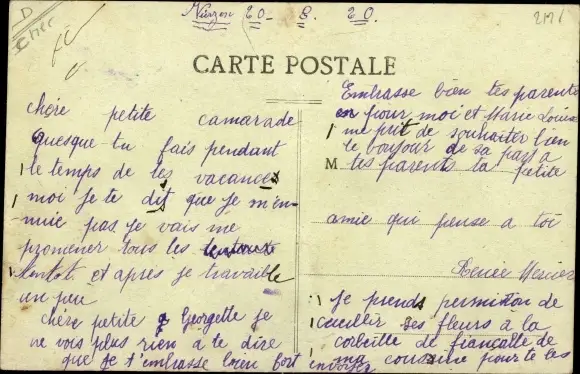 D
Cher
Vierzon 20 - 8. 20.
2M1
CARTE POSTALE
chère petite camarade
quesque tu fais pendant
le temps de tes vacances
moi je te dis que je m'en-
nuie pas je vais me
promener tous les
tantot et après je travaille
un peu
chère petite Georgette je
ne vois plus rien à te dire
que je t'embrasse bien fort
Embrasse bien tes parents
pour moi et Marie Louise
me prit de souhaiter bien
le bonjour de sa part a
M tes parents ta petite
amie qui pense a toi
Renée Mercier
je prends permition de
cueillir ses fleurs à la
corbeille de fiançalle de
ma cousine pour te les
envoyer